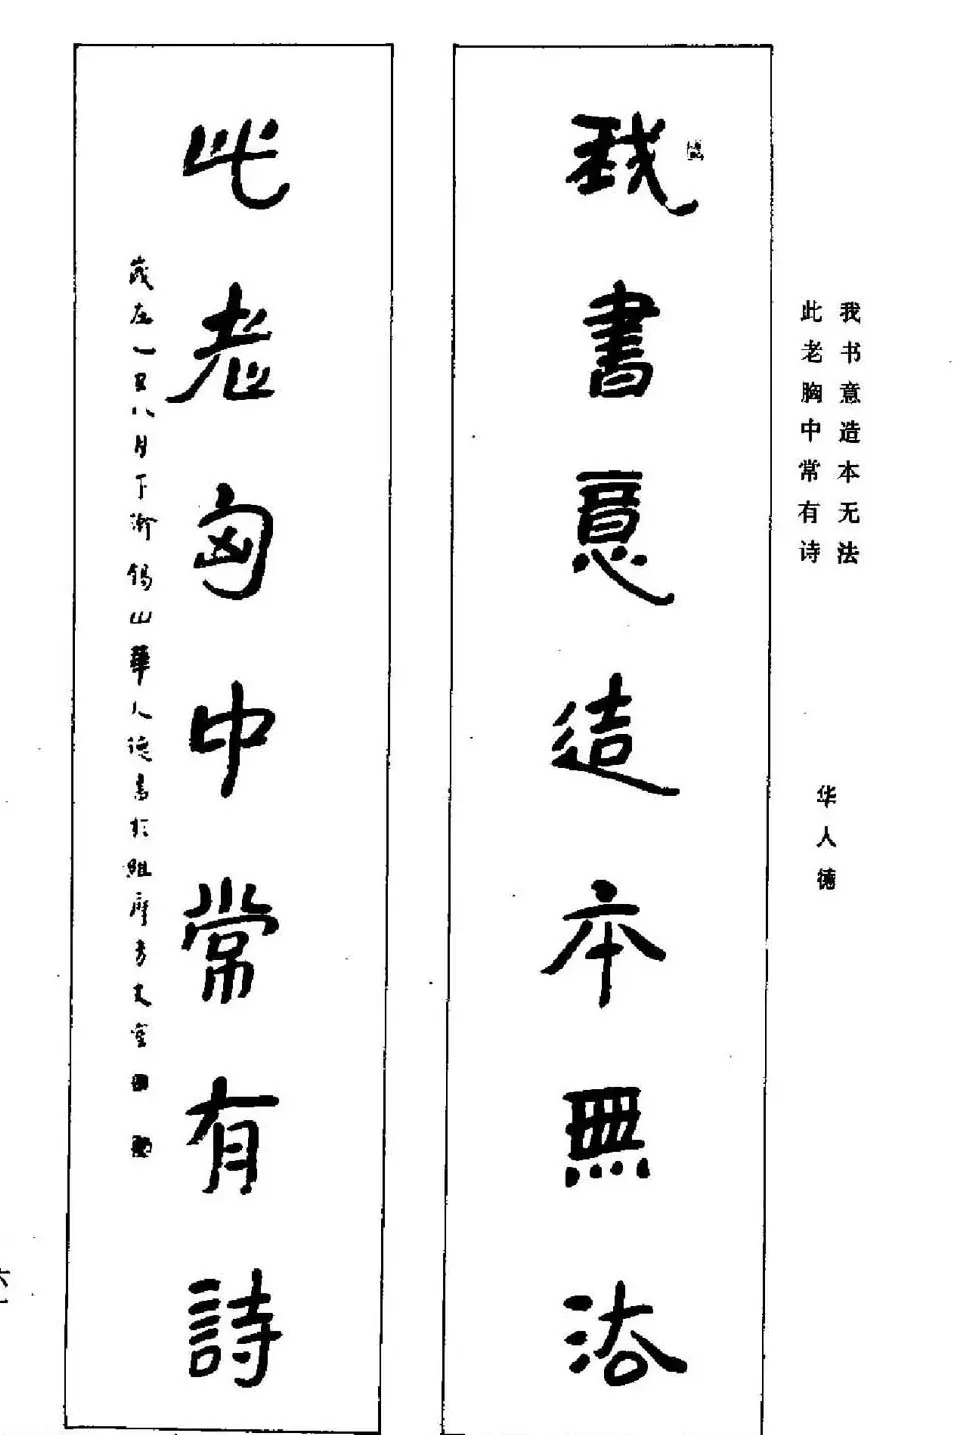 我书意造本无法
此老胸中常有诗
华人德
我書意造本無法
此老匈中常有詩
八月下澣錫山華人德書於維摩方丈室
六一